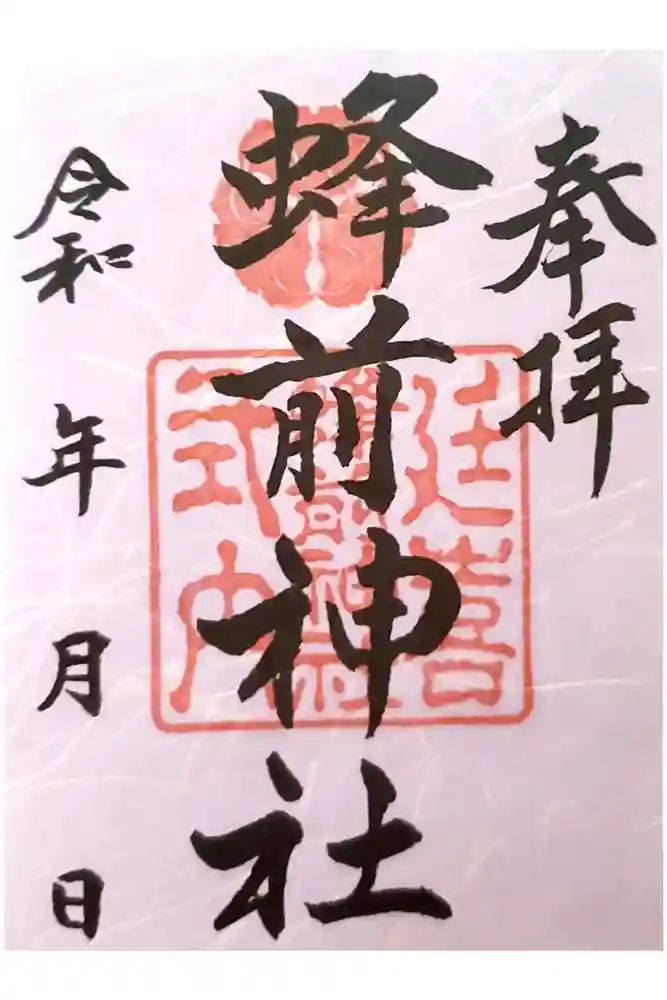 奉拝
蜂前神社
令和 年 月 日
延喜
神社
式内